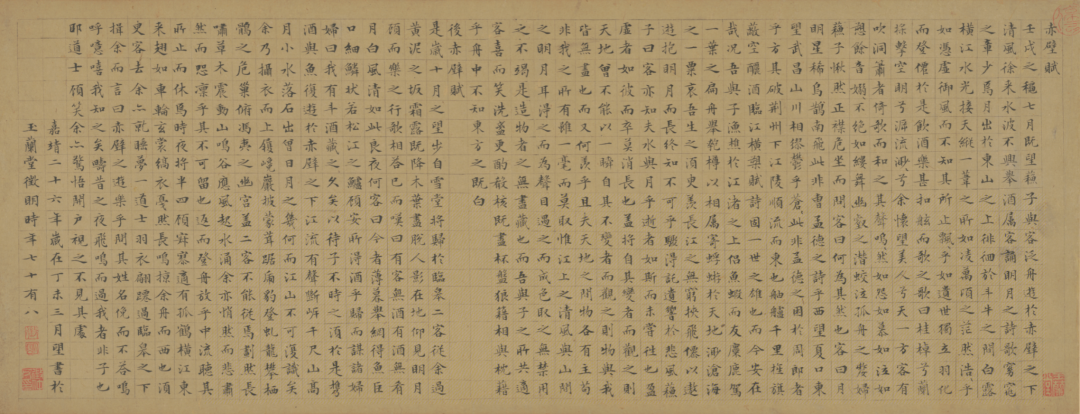 赤壁賦
壬戌之秋七月既望蘇子與客泛舟遊於赤壁之下
清風徐來水波不興舉酒屬客誦明月之詩歌窈窕
之章少焉月出於東山之上徘徊於斗牛之間白露
橫江水光接天縱一葦之所如凌萬頃之茫然浩乎
如憑虛御風而不知其所止飄乎如遺世獨立羽化
而登僊於是飲酒樂甚扣舷而歌之歌曰桂棹兮蘭
槳擊空明兮泝流光渺渺兮余懷望美人兮天一方客有
吹洞簫者倚歌而和之其聲嗚嗚然如怨如慕如泣如
訴餘音嫋嫋不絕如縷舞幽壑之潛蛟泣孤舟之嫠婦
蘇子愀然正襟危坐而問客曰何為其然也客曰月
明星稀烏鵲南飛此非曹孟德之詩乎西望夏口東
望武昌山川相繆鬱乎蒼蒼此非孟德之困於周郎者
乎方其破荊州下江陵順流而東也舳艫千里旌旗
蔽空釃酒臨江橫槊賦詩固一世之雄也而今安在
哉況吾與子漁樵於江渚之上侶魚蝦而友麋鹿駕
一葉之扁舟舉匏樽以相屬寄蜉蝣於天地渺滄海
之一粟哀吾生之須臾羨長江之無窮挾飛僊以遨
遊抱明月而長終知不可乎驟得託遺響於悲風蘇
子曰客亦知夫水與月乎逝者如斯而未嘗往也盈
虛者如彼而卒莫消長也蓋將自其變者而觀之則
天地曾不能以一瞬自其不變者而觀之則物與我
皆無盡也而又何羨乎且夫天地之間物各有主苟
非我之所有雖一毫而莫取惟江上之清風與山間
之明月耳得之而為聲目遇之而成色取之無禁用
之不竭是造物者之無盡藏也而吾與子之所共適
客喜而笑洗盞更酌殽核既盡杯盤狼藉相與枕藉
乎舟中不知東方之既白
後赤壁賦
是歲十月之望步自雪堂將歸於臨皋二客從余過
黃泥之坂霜露既降木葉盡脫人影在地仰見明月
顧而樂之行歌相答已而嘆曰有客無酒有酒無肴
月白風清如此良夜何客曰今者薄暮舉網得魚巨
口細鱗狀若松江之鱸顧安所得酒乎歸而謀諸婦
婦曰我有斗酒藏之久矣以待子不時之須於是攜
酒與魚復遊於赤壁之下江流有聲斷岸千尺山高
月小水落石出曾日月之幾何而江山不可復識矣
余乃攝衣而上履巉巖披蒙茸踞虎豹登虬龍攀栖
鶻之危巢俯馮夷之幽宮蓋二客不能從焉劃然長
嘯草木震動山鳴谷應風起水涌余亦悄然而悲肅
然而恐凜乎其不可留也返而登舟放乎中流聽其
所止而休焉時夜將半四顧寂寥適有孤鶴橫江東
來翅如車輪玄裳縞衣戛然長鳴掠余舟而西也須
臾客去余亦就睡夢一道士羽衣翩躚過臨皋之下
揖余而言曰赤壁之遊樂乎問其姓名俛而不答嗚
呼噫嘻我知之矣疇昔之夜飛鳴而過我者非子也
耶道士顧笑余亦驚悟開戶視之不見其處
嘉靖二十六年歲在丁未三月望書於
玉蘭堂徵明時年七十有八